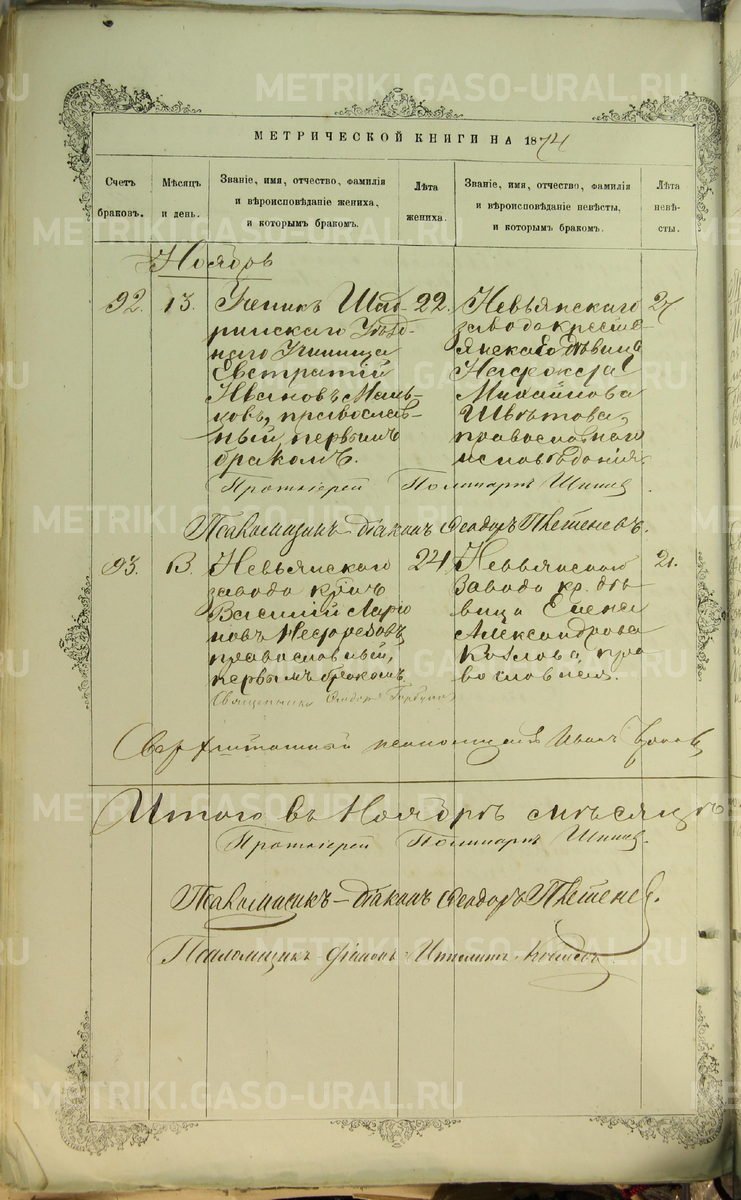 МЕТРИЧЕСКОЙ КНИГИ НА 1874
Счетъ браковъ.
Мѣсяцъ и день.
Званіе, имя, отчество, фамилія и вѣроисповѣданіе жениха, и которымъ бракомъ.
Лѣта жениха.
Званіе, имя, отчество, фамилія и вѣроисповѣданіе невѣсты, и которымъ бракомъ.
Лѣта невѣсты.
Ноябрь
92.
13.
Ученикъ Шад-
ринскаго Уѣзд-
наго Училища
Евстратій
Ивановъ
православ-
ный, первымъ
бракомъ.
22.
Невьянскаго
завода кресть-
янская дѣвица
Михайлова
Цвѣтова,
православнаго
исповѣданія.
27
Протоіерей Поликарпъ
Псаломщикъ-діаконъ Ѳеодоръ
93.
13.
Невьянскаго
завода
Василій Ларіо-
новъ
православный,
первымъ бракомъ.
24
Невьянскаго
завода кр. дѣ-
вица Елена
Александрова
Козлова, пра-
вославная.
21.
Священникъ Ѳеодоръ
Сверхштатный псаломщикъ Иванъ
Итого въ Ноябрѣ мѣсяцѣ
Протоіерей Поликарпъ
Псаломщикъ-діаконъ Ѳеодоръ
Псаломщикъ діаконъ Ипполитъ
METRIKI.GASO-URAL.RU